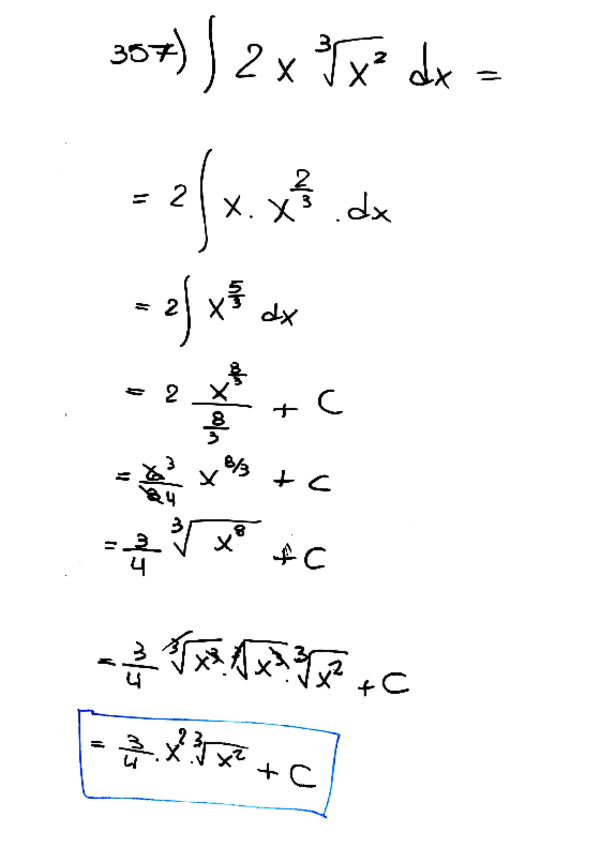 357) ∫ 2x ∛(x²) dx =
= 2 ∫ x · x^(2/3) · dx
= 2 ∫ x^(5/3) dx
= 2 x^(8/3) / (8/3) + C
= 6̸ 3 / 8̸ 4 x^(8/3) + C
= 3/4 ∛(x⁸) + C
= 3/4 ∛(x³) · ∛(x³) · ∛(x²) + C
= 3/4 · x² · ∛(x²) + C